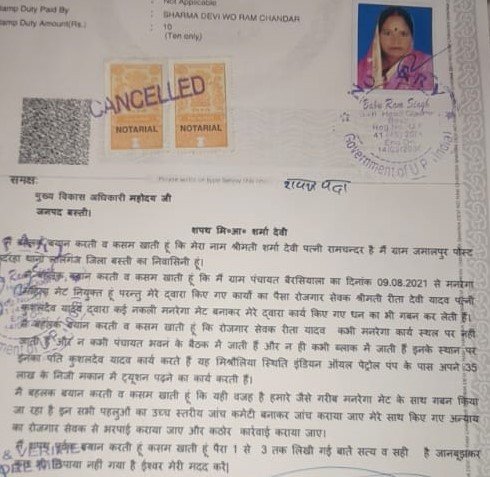 Stamp Duty Paid By
Stamp Duty Amount(Rs.)
: Not Applicable
: SHARMA DEVI WO RAM CHANDAR
: 10
(Ten only)
CANCELLED
NOTARIAL NOTARIAL
NOTARY
Babu Ram Singh
Government of U.P.
Please write or type below this line
समक्षः
शपथ पत्र
मुख्य विकास अधिकारी महोदय जी
जनपद बस्ती।
शपथ मि०आ० शर्मा देवी
बयान करती व कसम खाती हूं कि मेरा नाम श्रीमती शर्मा देवी पत्नी रामचन्दर है मैं ग्राम जमालपुर पोस्ट
थाना लालगंज जिला बस्ती का निवासिनी हूं।
बहलक बयान करती व कसम खाती हूं कि मैं ग्राम पंचायत बैरसियाला का दिनांक 09.08.2021 से मनरेगा
मेट नियुक्त हूं परन्तु मेरे द्वारा किए गए कार्यो का पैसा रोजगार सेवक श्रीमती रीता देवी यादव पत्नी
कुशलदेव यादव द्वारा कई नकली मनरेगा मेट बनाकर मेरे द्वारा कार्य किए गए धन का भी गबन कर लेती हैं।
मैं बहलक बयान करती व कसम खाती हूं कि रोजगार सेवक रीता यादव कभी मनरेगा कार्य स्थल पर नही
जाती हैं और न कभी पंचायत भवन के बैठक में जाती हैं और न ही कभी ब्लाक में जाती हैं इनके स्थान पर
इनका पति कुशलदेव यादव कार्य करते हैं यह मिश्रौलिया स्थिति इंडियन ऑयल पेट्रोल पंप के पास अपने 35
लाख के निजी मकान में ट्यूशन पढ़ने का कार्य करती हैं।
मैं बहलक बयान करती व कसम खाती हूं कि यही वजह है हमारे जैसे गरीब मनरेगा मेट के साथ गबन किया
जा रहा है इन सभी पहलुओं का उच्च स्तरीय जांच कमेटी बनाकर जांच कराया जाए मेरे साथ किए गए अन्याय
का रोजगार सेवक से भरपाई कराया जाए और कठोर कार्रवाई कराया जाए।
मैं शपथ पूर्वक बयान करती हूं कसम खाती हूं पैरा 1 से 3 तक लिखी गई बाते सत्य व सही है जानबूझकर
कुछ भी छिपाया नहीं गया है ईश्वर मेरी मदद करे|
& VERIFIED